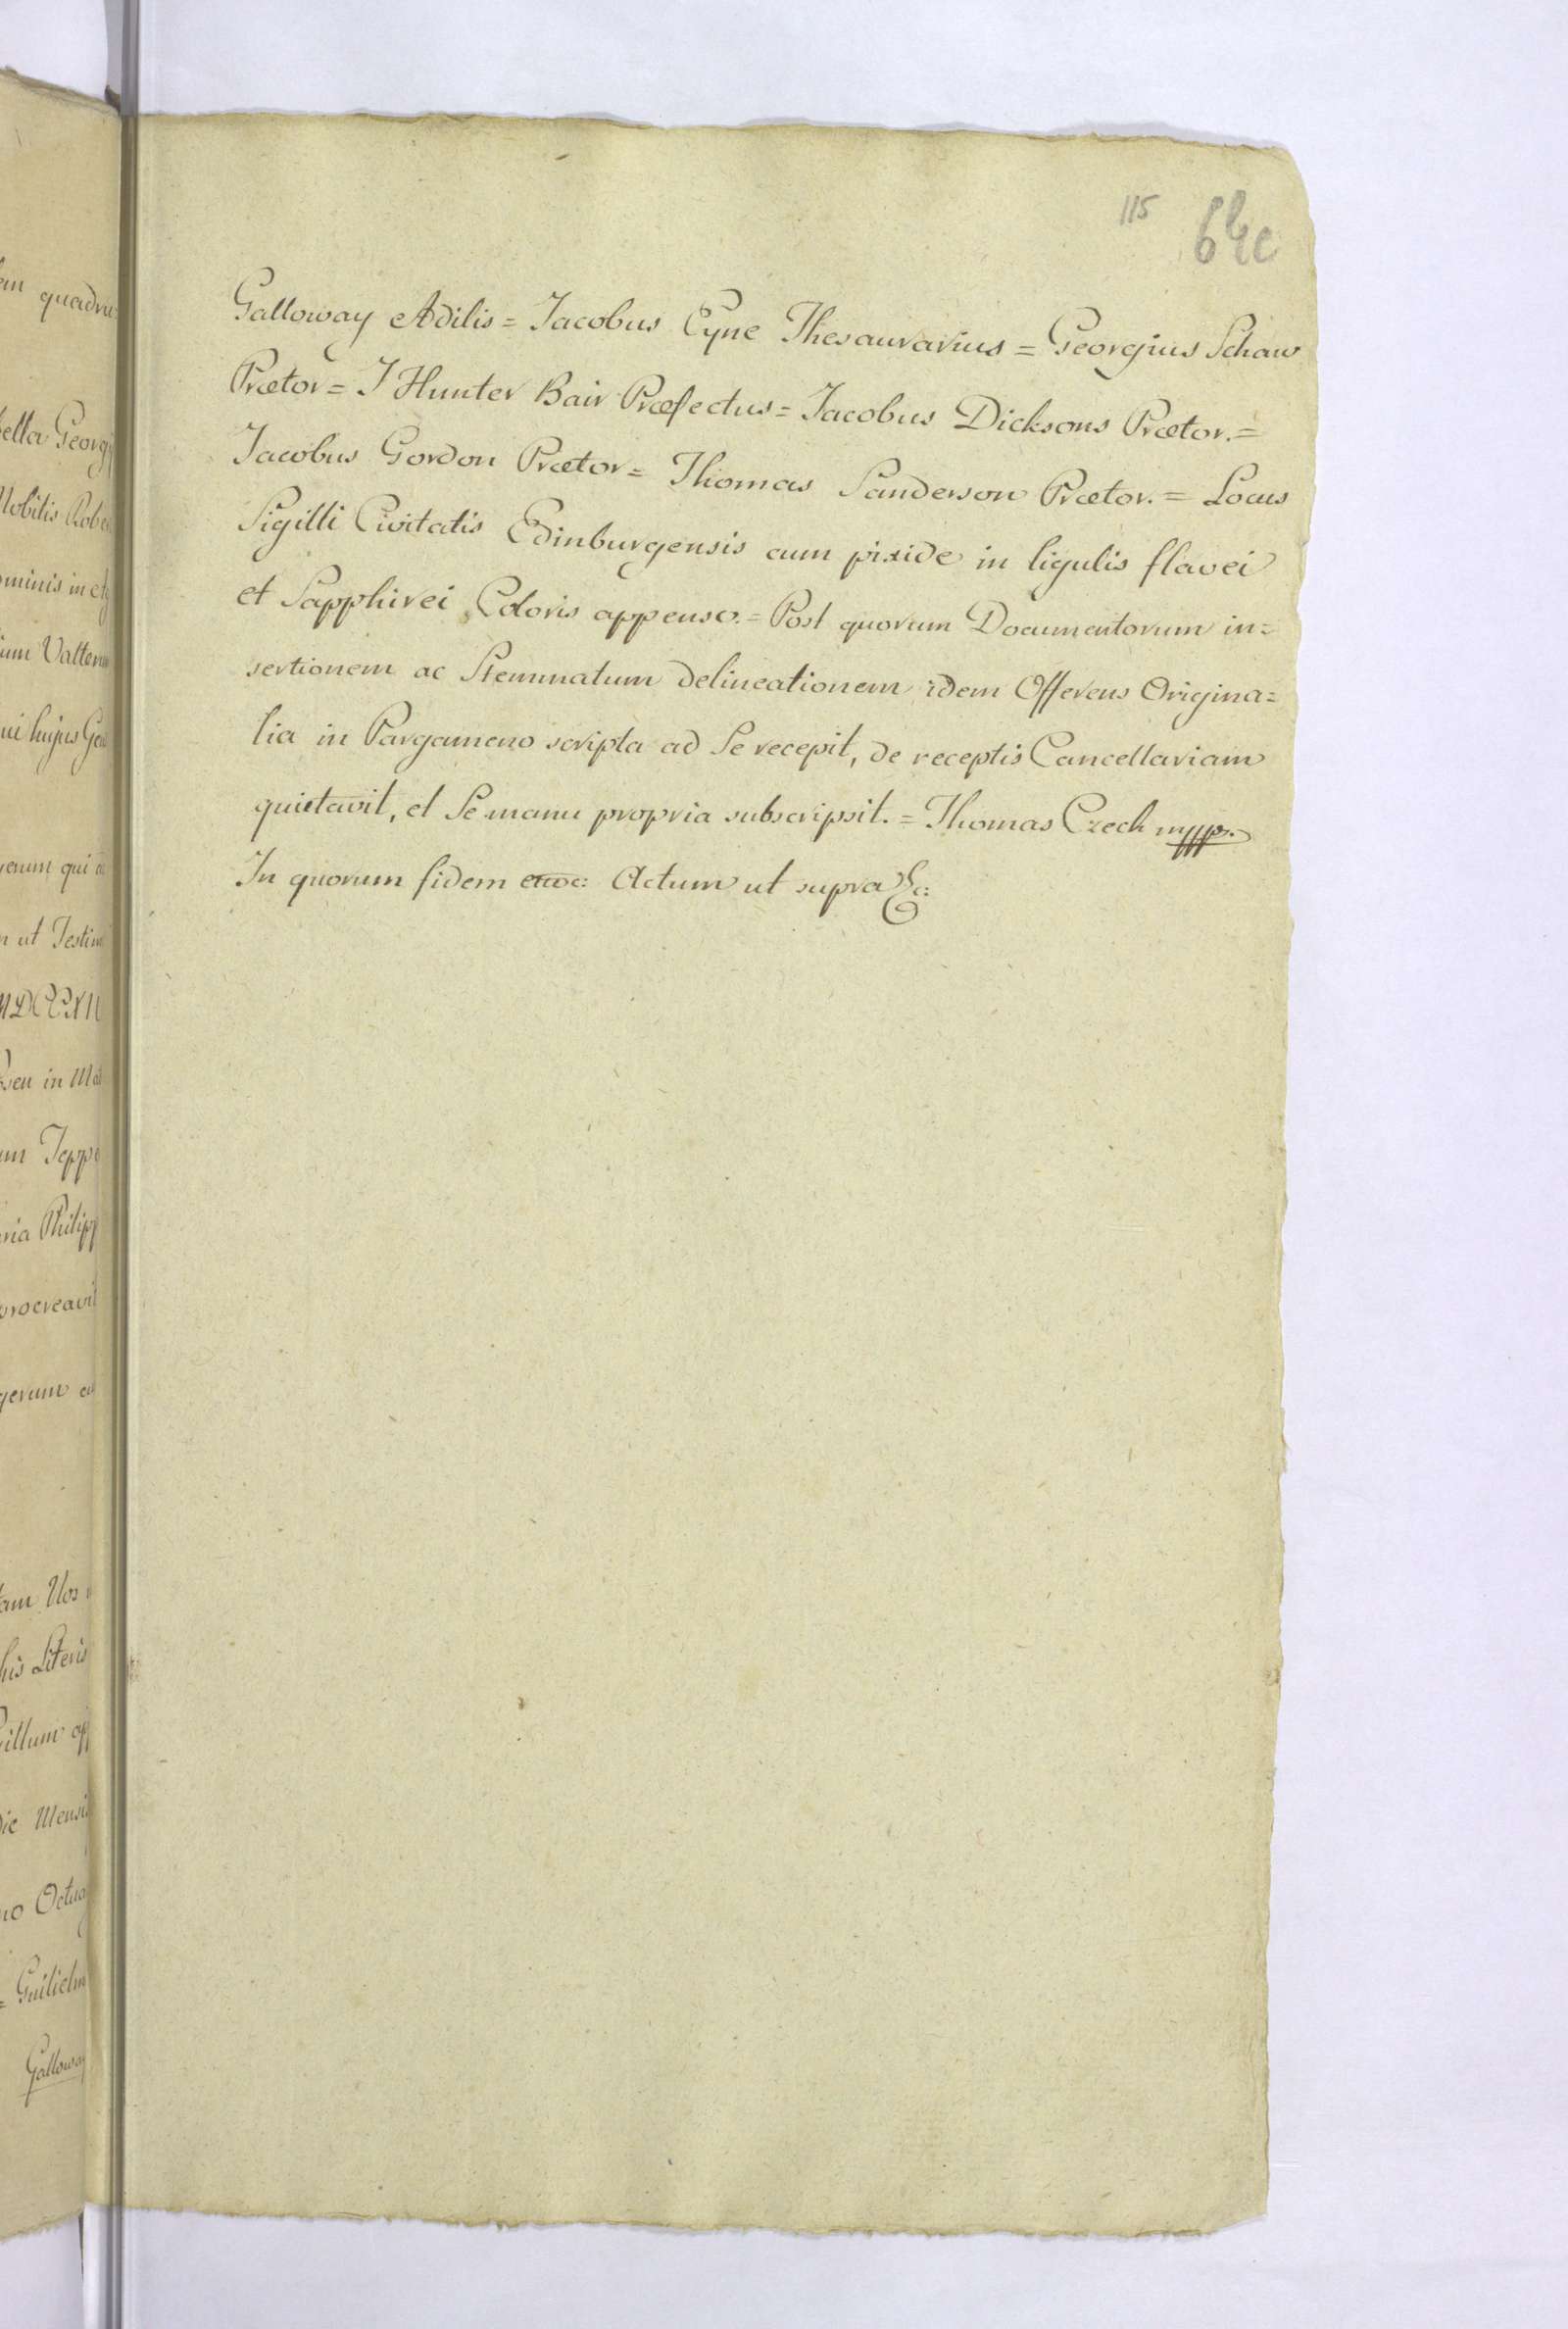 115 64c
Galloway Ædilis = Jacobus Cyne Thesaurarius = Georgius Schaw
Prætor = J Hunter Bair Præfectus = Jacobus Dicksons Prætor. =
Jacobus Gordon Prætor = Thomas Sanderson Prætor. = Locus
Sigilli Civitatis Edinburgensis cum pixide in ligulis flavei
et Sapphirei Coloris appenso. = Post quorum Documentorum in=
sertionem ac Stemmatum delineationem idem Offerens Origina=
lia in Pargameno scripta ad Se recepit, de receptis Cancellariam
quietavit, et Se manu propria subscripsit. = Thomas Czech mppp.
In quorum fidem Actum ut supra &c:
em quadru
ella Georgi
Nobilis Robe
ominis in
um Valteru
ui hujus Ge
erum qui
n ut Testim
MDCCXII
seu in Ma
um Jepp
ria Philipp
procreavit
gerum
am Nos
his Literis
gillum
die Mensis
no Octuag
= Guilielm
Galloway